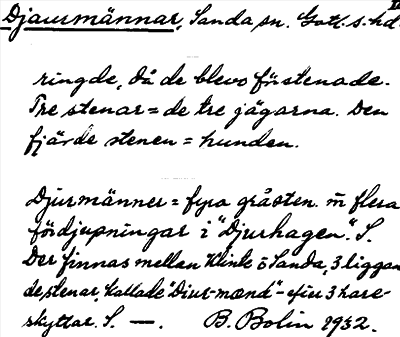 Djaurmännar, Sanda sn. Gotl. s. hd.
ringde, då de blevo förstenade.
Tre stenar = de tre jägarna. Den
fjärde stenen = hunden.
Djurmänner = fyra gråsten. m flera
fördjupningar i "Djurhagen". S.
Der finnas mellan Klinte o Sanda, 3 liggan
de stenar, kallade "Djur-mænd" - efter 3 hare-
skyttar. S. —. B. Bolin 1932.